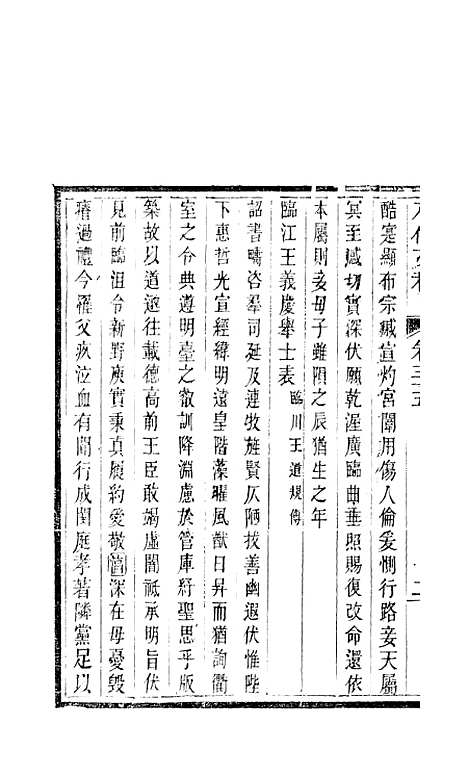 酷寔顯布宗臧宣灼宮闈用傷人倫爰惻行路妾天屬
冥至感切實深伏願乾渥廣臨曲垂照賜復改命還依
本屬則妾母子雖隕之辰猶生之年
臨江王義慶舉士表 臨川王道規傳
詔書疇咨羣司延及連牧旌賢仄陋拔善幽遐伏惟陛
下惠哲光宣經緯明遠皇階藻曜風猷日昇而猶詢衢
室之令典遵明臺之叡訓降淵慮於管庫紆聖思乎版
築故以道邈往載德高前王臣敢竭虛闇祗承明旨伏
見前臨沮令新野庾實秉真履約愛敬
深在母憂毀
瘠過禮今罹父疚泣血有聞行成閨庭孝著隣黨足以